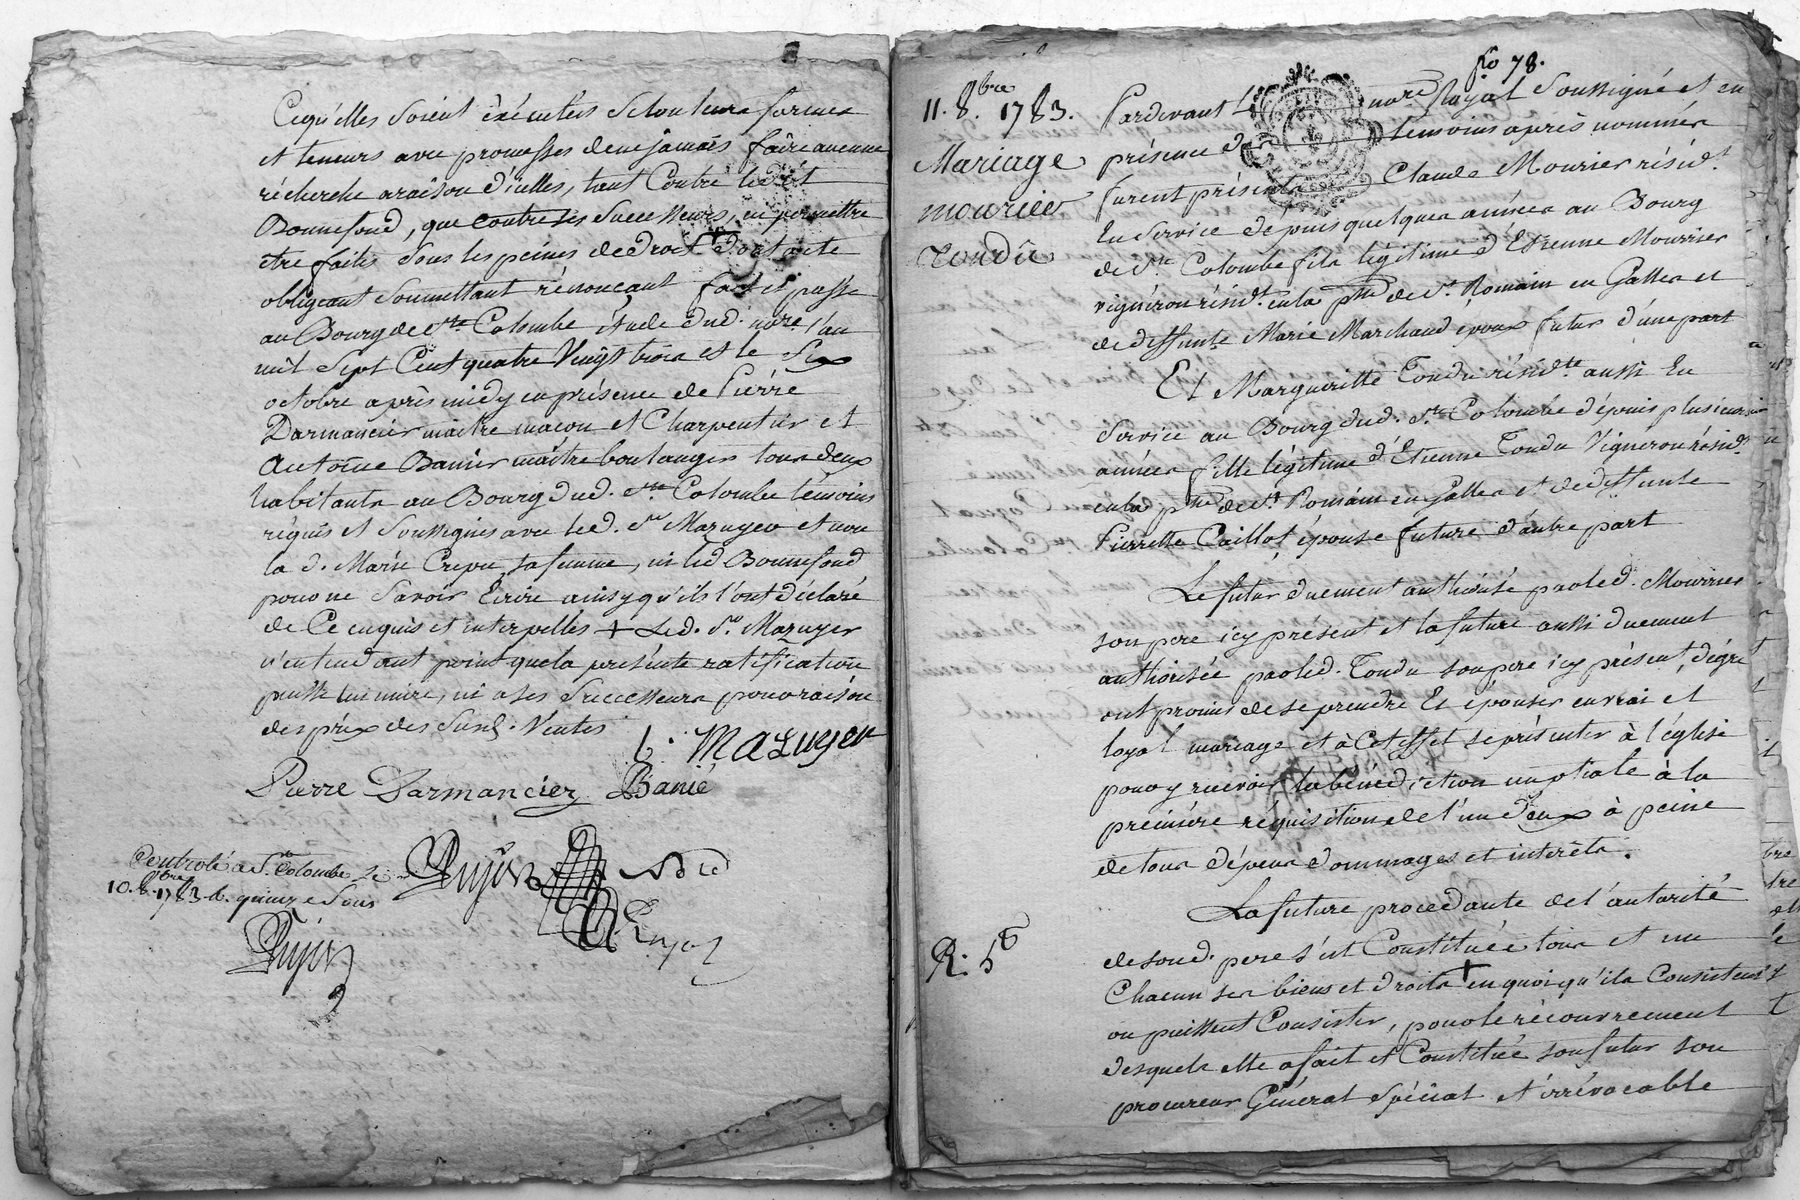 Cequ'elles soient éxécutées selon leurs formes
et teneurs avec promesses de ne jamais faire aucune
récherche araison d'icelles, tant Contre ledit
Bonnefond, que contre ses successeurs, ny permettre
être faites sous les peines de droit dont acte
obligeant soumettant rénonçant fait et passé
au Bourg de Ste Colombe étude dud. nore. l'an
mil Sept Cent quatre Vingt trois et le Six
octobre après midy en présence de Piérre
Darmancier maitre maçon et Charpentier et
Antoine Banier maître boulanger tous deux
habitants au Bourg dud. Ste Colombe témoins
réquis et soussignés avec led. Sr Mazuyer et non
la d. Marie Crepu sa femme, ni led Bonnefond
pour ne savoir Ecrire ainsy qu'ils l'ont déclaré
de Ce enquis et interpellés + Led. Sr. Mazuyer
n'entendant point que la présente ratification
puisse lui nuire, ni a ses Successeurs pour raison
des prix des susd. Ventes
b. Mazuyer
Pierre Darmancier Banié
Pujon
Controlé a Ste Colombe le
10. 8bre 1783 R. quinze sous
Pujon
fo 78.
11. 8bre 1783.
Mariage
mourier
Tondu
Pardevant Le nore Royal Soussigné et en
présence des témoins après nommés
furent présents Claude Mourier résidt.
En Service dépuis quelques années au Bourg
de Ste Colombe fils légitime d'Etienne Mourier
vigneron résidt. en la psse de St. Romain en Galles et
de deffunte Marie Marchand époux futur d'une part
Et Margueritte Tondu résidte. aussi En
Service au Bourg dud. Ste Colombe dépuis plusieurs
années fille légitime d'Etienne Tondu Vigneron résidt.
en la psse de St Romain en Galles et de deffunte
Pierrette Caillot épouse future d'autre part
Le futur duement authorisé par led. Mourier
son pere icy présent et la future aussi duement
authorisée par led. Tondu son pere icy présent, dégré
ont promis de se prendre Et épouser en vrai et
loyal mariage et à Cet effet se présenter à l'église
pour y recevoir la bénédiction nuptiale à la
première réquisition de l'un d'eux à peine
de tous dépens dommages et intérêts.
La future procedante de l'autorité
de soud. pere s'est Constituée tous et un
Chacun ses biens et droits + en quoi qu'ils Consistent
ou puissent Consister, pour le récouvrement
desquels elle a fait et Constitué son futur son
procureur Général spécial et irrévocable
R. 5